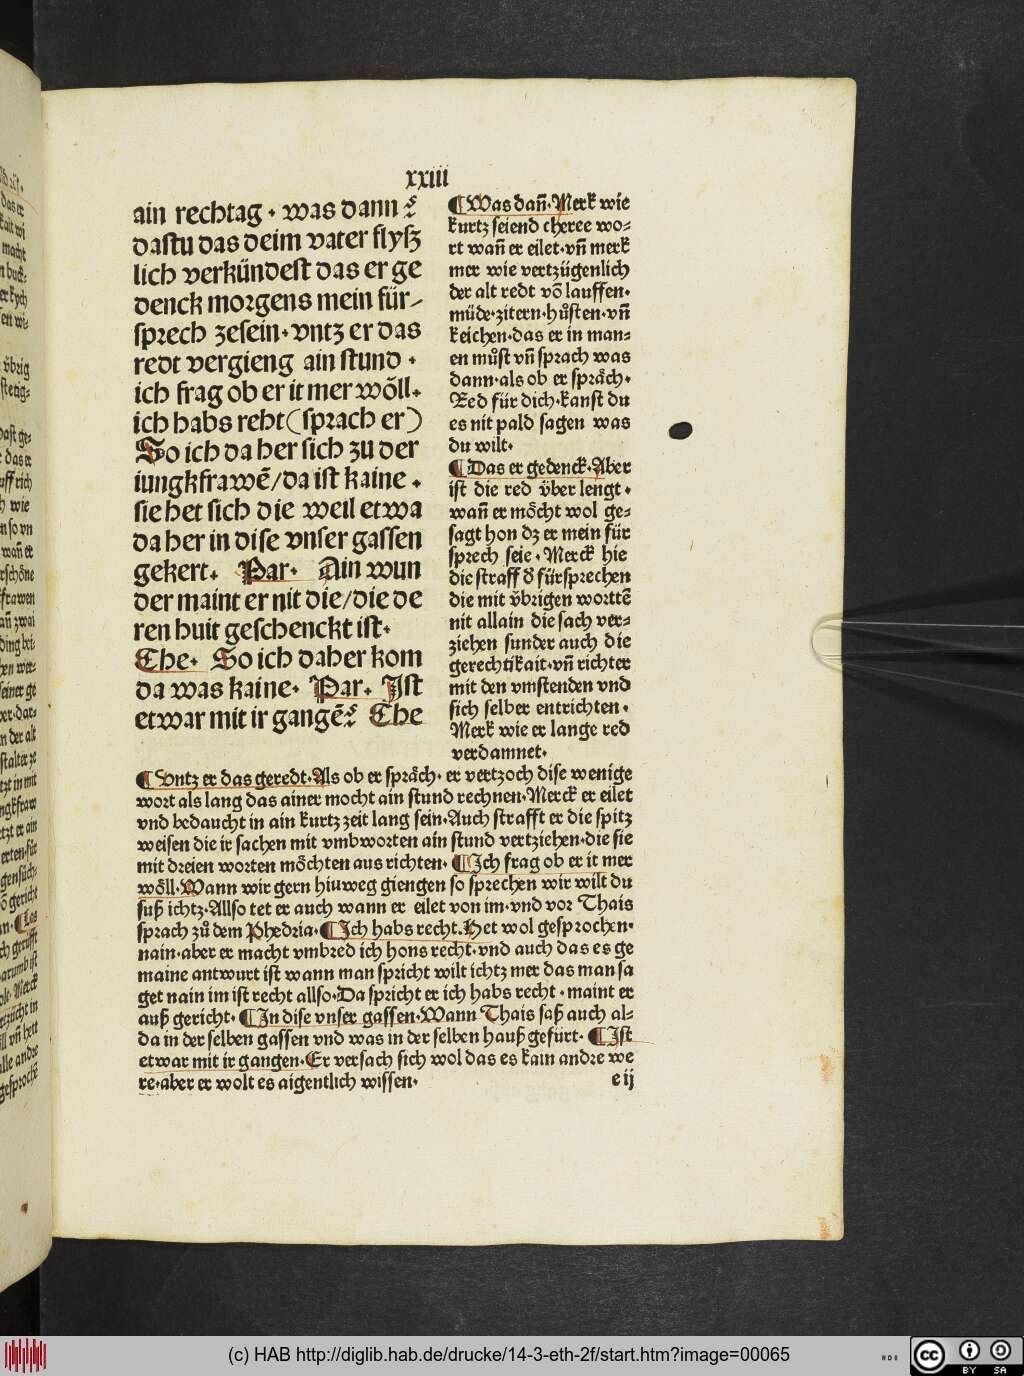 xxiii
ain rechtag · was dann ?
dastu das deim vater flyß
lich verkündest das er ge
denck morgens mein für-
sprech zesein · vntz er das
redt vergieng ain stund ·
ich frag ob er it mer wöll.
ich habs reht (sprach er)
So ich da her sich zu der
iungkfrawē / da ist kaine .
sie het sich die weil etwa
da her in dise vnser gassen
gekert. Par. Ain wun
der maint er nit die / die de
ren huit geschenckt ist.
Che. So ich daher kom
da was kaine. Par. Ist
etwar mit ir gangē? Che
¶ Was dañ. Merk wie
kurtz seiend cheree wo=
rt wañ er eilet. vñ merk
mer wie vertzügenlich
der alt redt vō lauffen.
müde. zitern. hůsten. vñ
keichen. das er in man=
en můst vñ sprach was
dann. als ob er spräch.
Red für dich. kanst du
es nit pald sagen was
du wilt.
¶ Das er gedenck. Aber
ist die red v̈ber lengt .
wañ er möcht wol ge=
sagt hon dz er mein für
sprech seie . Merck hie
die straff d̕ fürsprechen
die mit v̈brigen worttē
nit allain die sach ver=
ziehen sunder auch die
gerechtikait. vñ richter
mit den vmstenden vnd
sich selber entrichten .
Merk wie er lange red
verdamnet.
¶ Vntz er das geredt. Als ob er spräch. er vertzoch dise wenige
wort als lang das ainer mocht ain stund rechnen. Merck er eilet
vnd bedaucht in ain kurtz zeit lang sein. Auch strafft er die spitz
weisen die ir sachen mit vmbworten ain stund vertziehen. die sie
mit dreien worten möchten aus richten. ¶ Ich frag ob er it mer
wöll. Wann wir gern hinweg giengen so sprechen wir wilt du
suß ichtz. Allso tet er auch wann er eilet von im. vnd vor Thais
sprach zů dem Phedria. ¶ Ich habs recht. Het wol gesprochen.
nain. aber er macht vmbred ich hons recht. vnd auch das es ge
maine antwurt ist wann man spricht wilt ichtz mer das man sa
get nain im ist recht allso. Da spricht er ich habs recht . maint er
auß gericht. ¶ In dise vnser gassen. Wann Thais saß auch al=
da in der selben gassen vnd was in der selben hauß gefürt. ¶ Ist
etwar mit ir gangen. Er versach sich wol das es kain andre we
re. aber er wolt es aigentlich wissen.
e ij
(c) HAB http://diglib.hab.de/drucke/14-3-eth-2f/start.htm?image=00065
cc BY SA